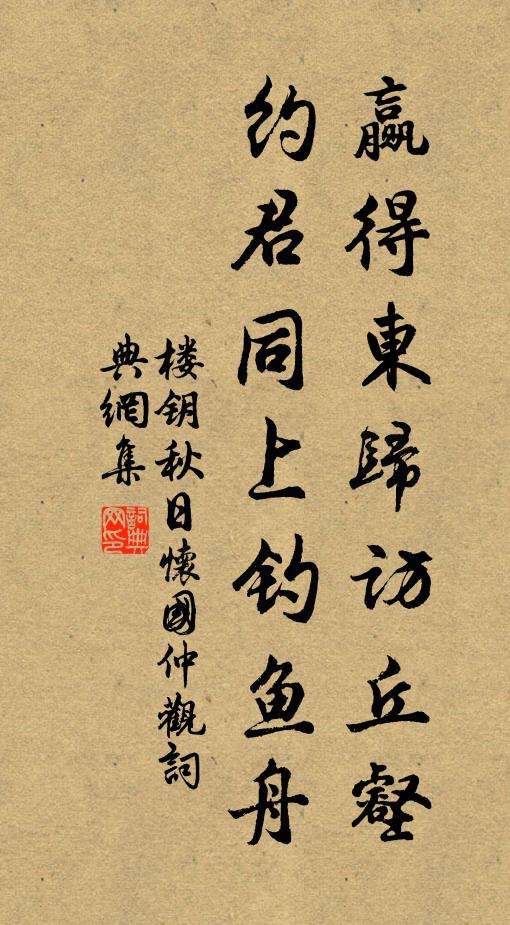 赢得東歸访丘壑
约君同上钓鱼舟
楼钥秋日懷國仲觀詞
典網集
詞典
网印